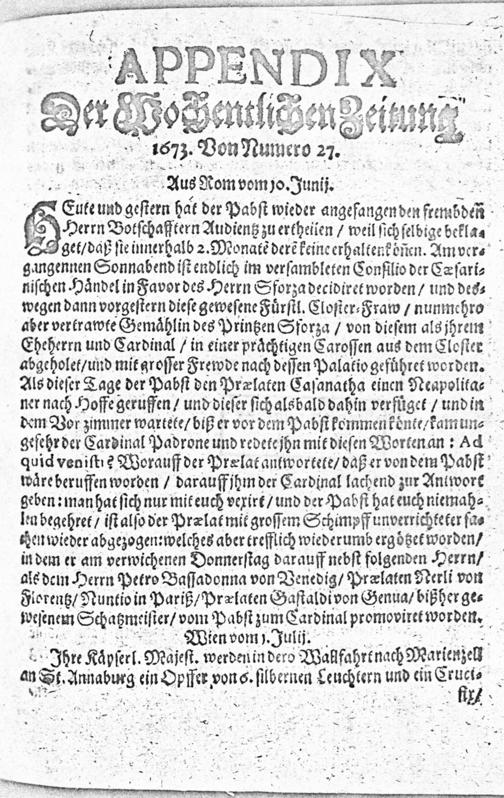 APPENDIX
Der Wochentlichen Zeitung
1673. Von Numero 27.
Aus Rom vom 10. Junij.
HEute und gestern hat der Pabst wieder angefangen den frembden
Herrn Botschafftern Audientz zu ertheilen / weil sich selbige bekla-
get / daß sie innerhalb 2. Monatē derē keine erhalten köñen. Am ver-
gangennen Sonnabend ist endlich im versambleten Consilio der Cæsari-
nischen Händel in Favor des Herrn Sforza decidiret worden / und des-
wegen dann vorgestern diese gewesene Fürstl. Closter-Fraw / nunmehro
aber vertrawte Gemählin des Printzen Sforza / von diesem als jhrem
Eheherrn und Cardinal / in einer prächtigen Carossen aus dem Closter
abgeholet / und mit grosser Frewde nach dessen Palatio geführet worden.
Als dieser Tage der Pabst den Prælaten Casanatha einen Neapolita-
ner nach Hoffe geruffen / und dieser sich alsbald dahin verfüget / und in
dem Vor zimmer wartete / biß er vor dem Pabst kommen könte / kam un-
gefehr der Cardinal Padrone und redete jhn mit diesen Worten an : Ad
quid venisti? Worauff der Prælat antwortete / daß er von dem Pabst
wäre beruffen worden / darauff jhm der Cardinal lachend zur Antwort
geben : man hat sich nur mit euch vexirt / und der Pabst hat euch niemah-
len begehret / ist also der Prælat mit grossem Schimpff unverrichteter sa-
chen wieder abgezogen: welches aber trefflich wiederumb ergötzet worden /
in dem er am verwichenen Donnerstag darauff nebst folgenden Herrn /
als dem Herrn Petro Bassadonna von Venedig / Prælaten Nerli von
Florentz / Nuntio in Pariß / Prælaten Gastaldi von Genua / bißher ge-
wesenem Schatzmeister / vom Pabst zum Cardinal promoviret worden.
Wien vom 1. Julij.
Jhre Käyserl. Majest. werden in dero Wallfahrt nach Marienzell
an St. Annaburg ein Opffer von 6. silbernen Leuchtern und ein Cruci-
fix /